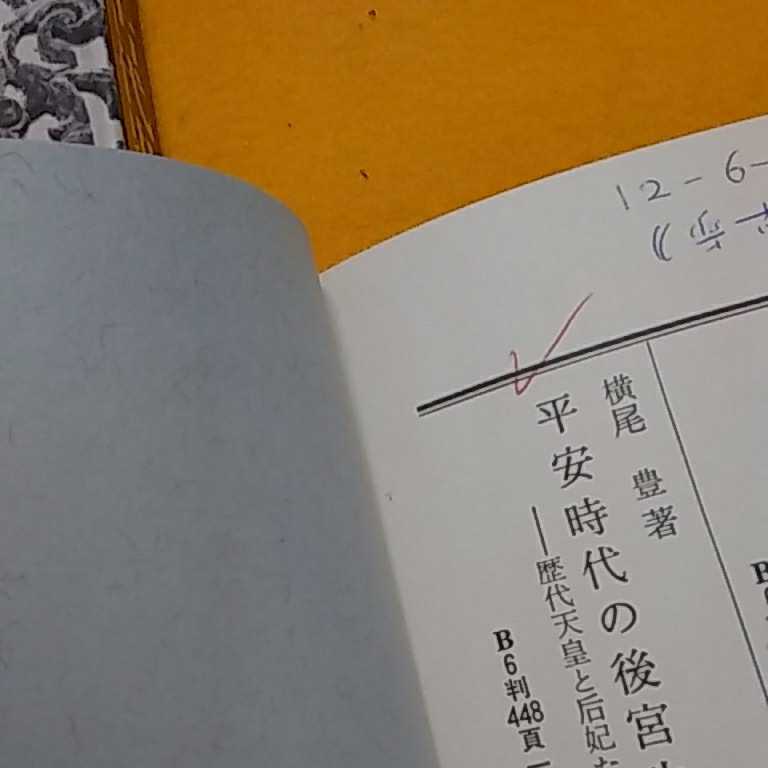 12-6-
横尾 豊著
平安時代の後宮
―歴代天皇と后妃た
B6判448頁
B